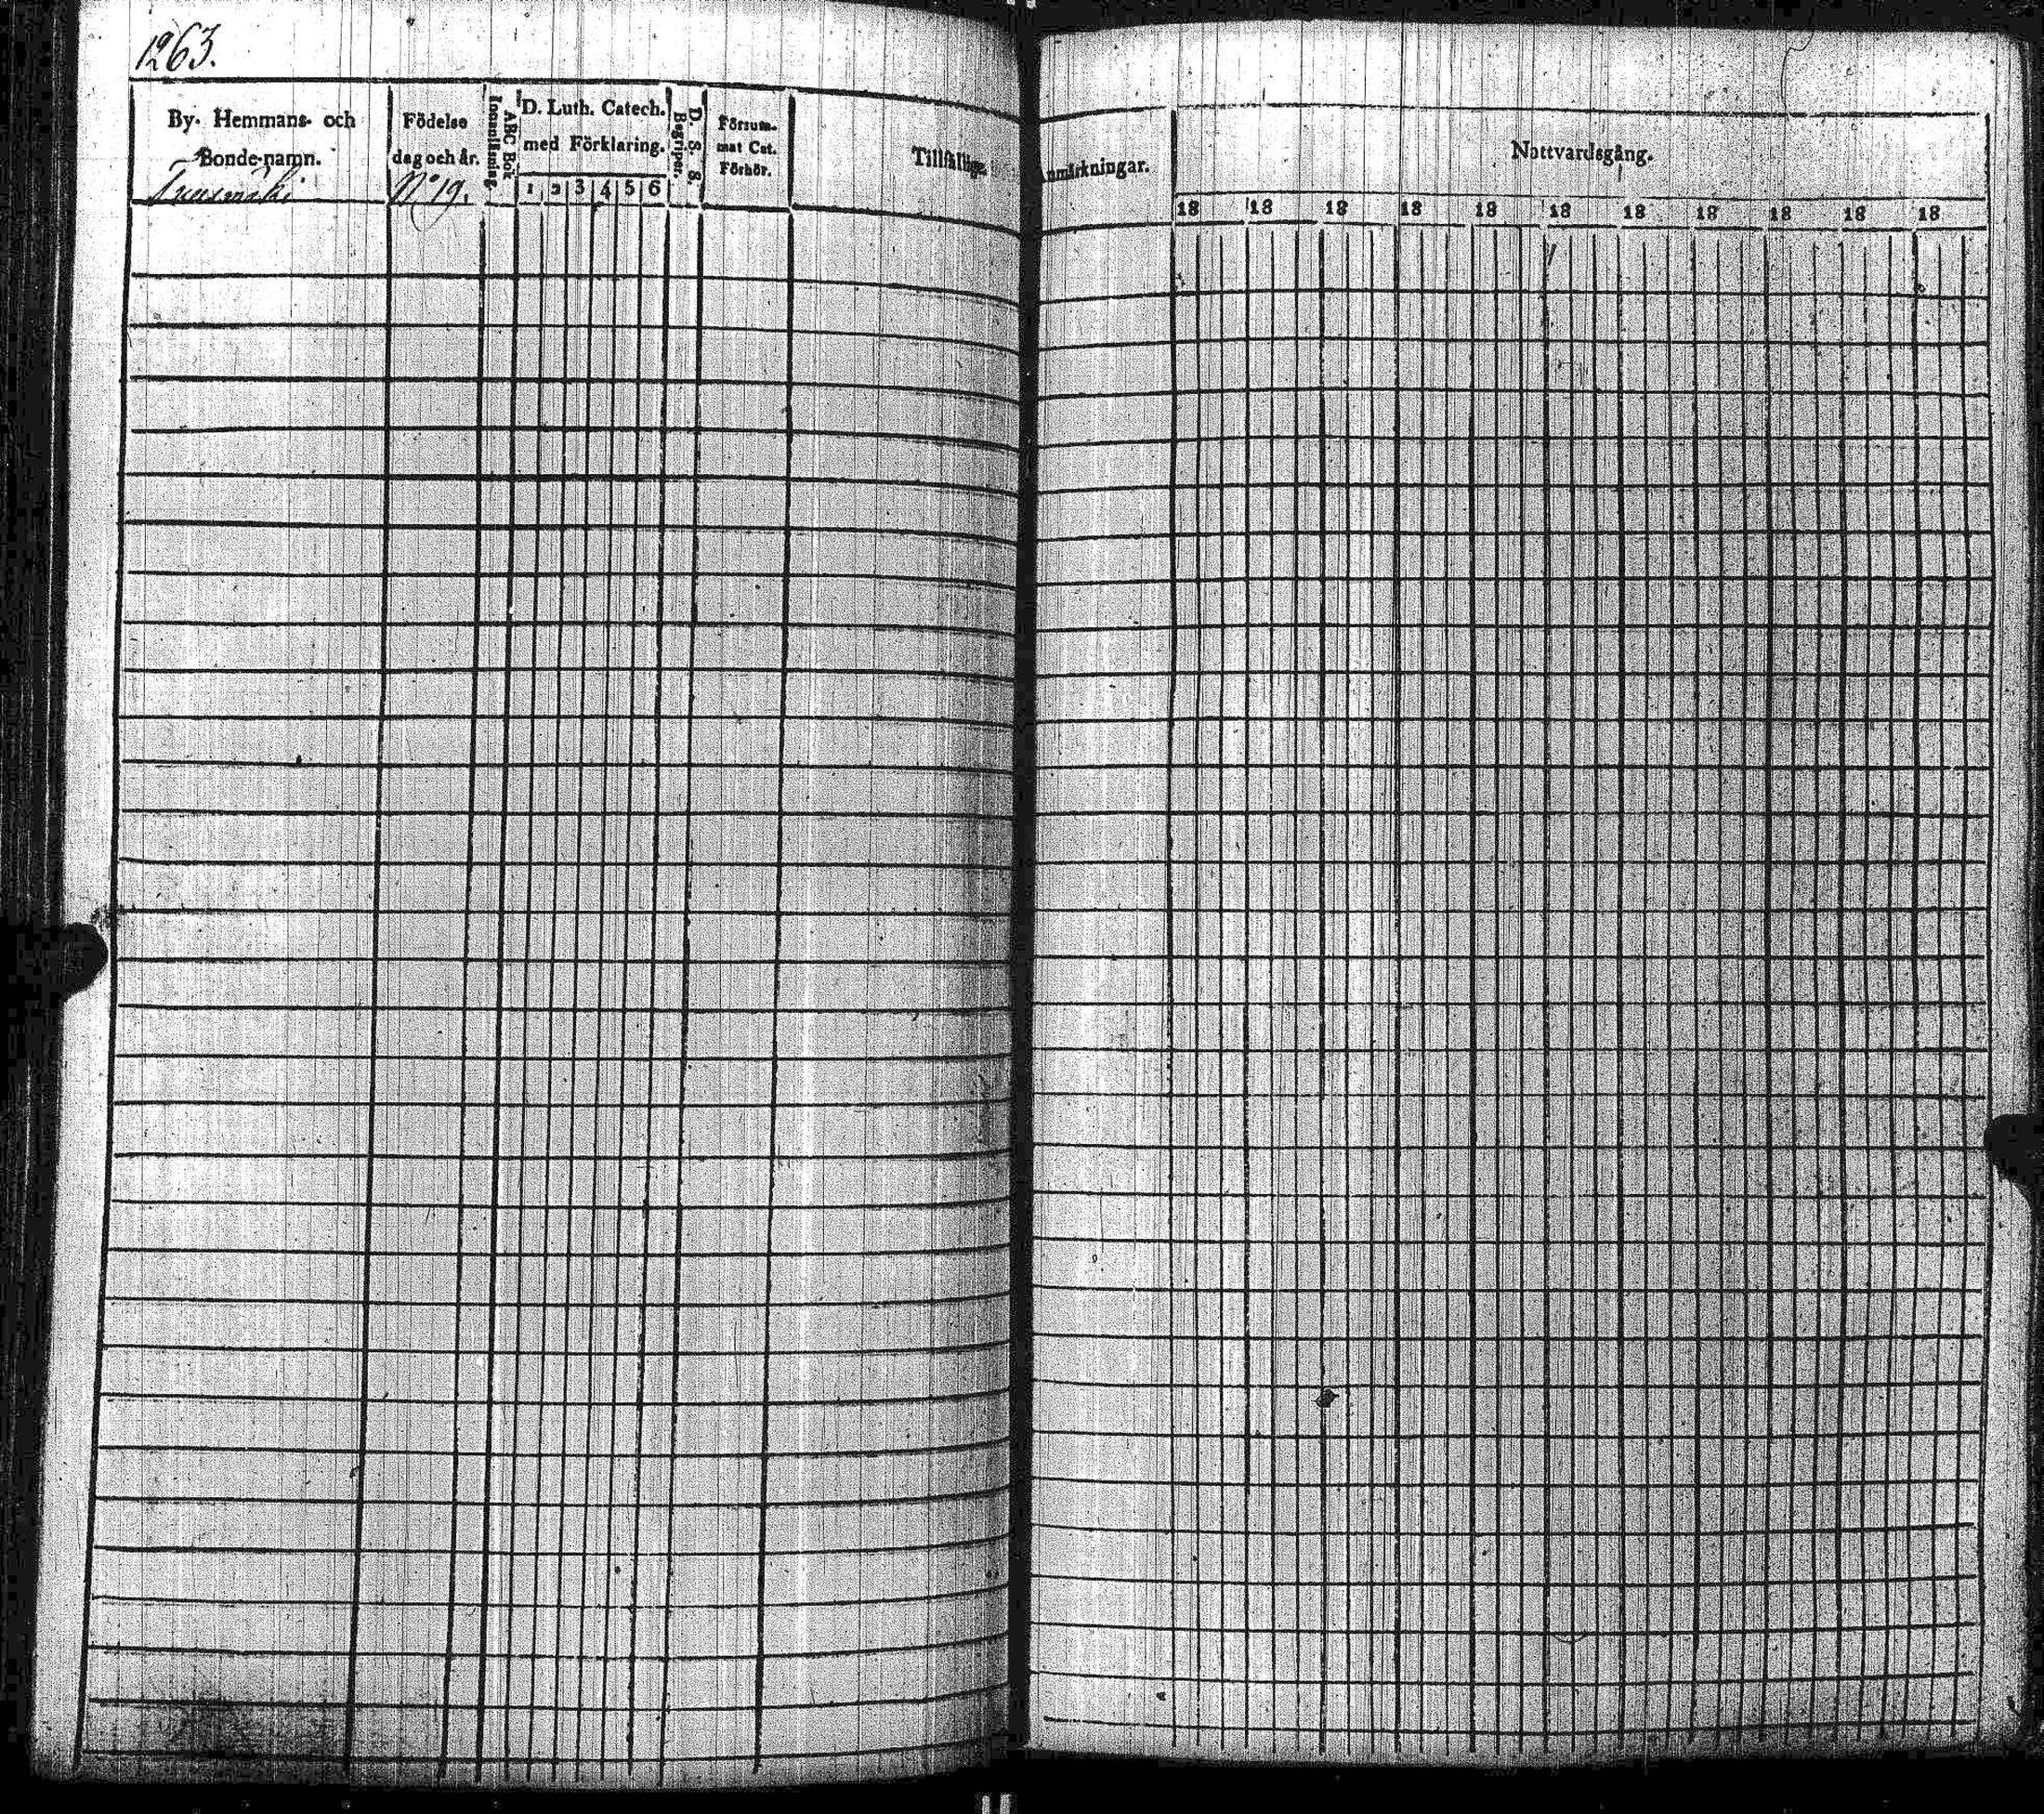 1263.
By. Hemmans- och
Bonde-namn.
Födelse
dag och år.
No 19.
Innanläsning.
ABC Bok
D. Luth. Catech.
med Förklaring.
1 2 3 4 5 6
Begriper.
D. S. S.
Försum-
mat Cat.
Förhör.
Tillfällige
Anmärkningar.
Nattvardsgång.
18 18 18 18 18 18 18 18 18 18 18